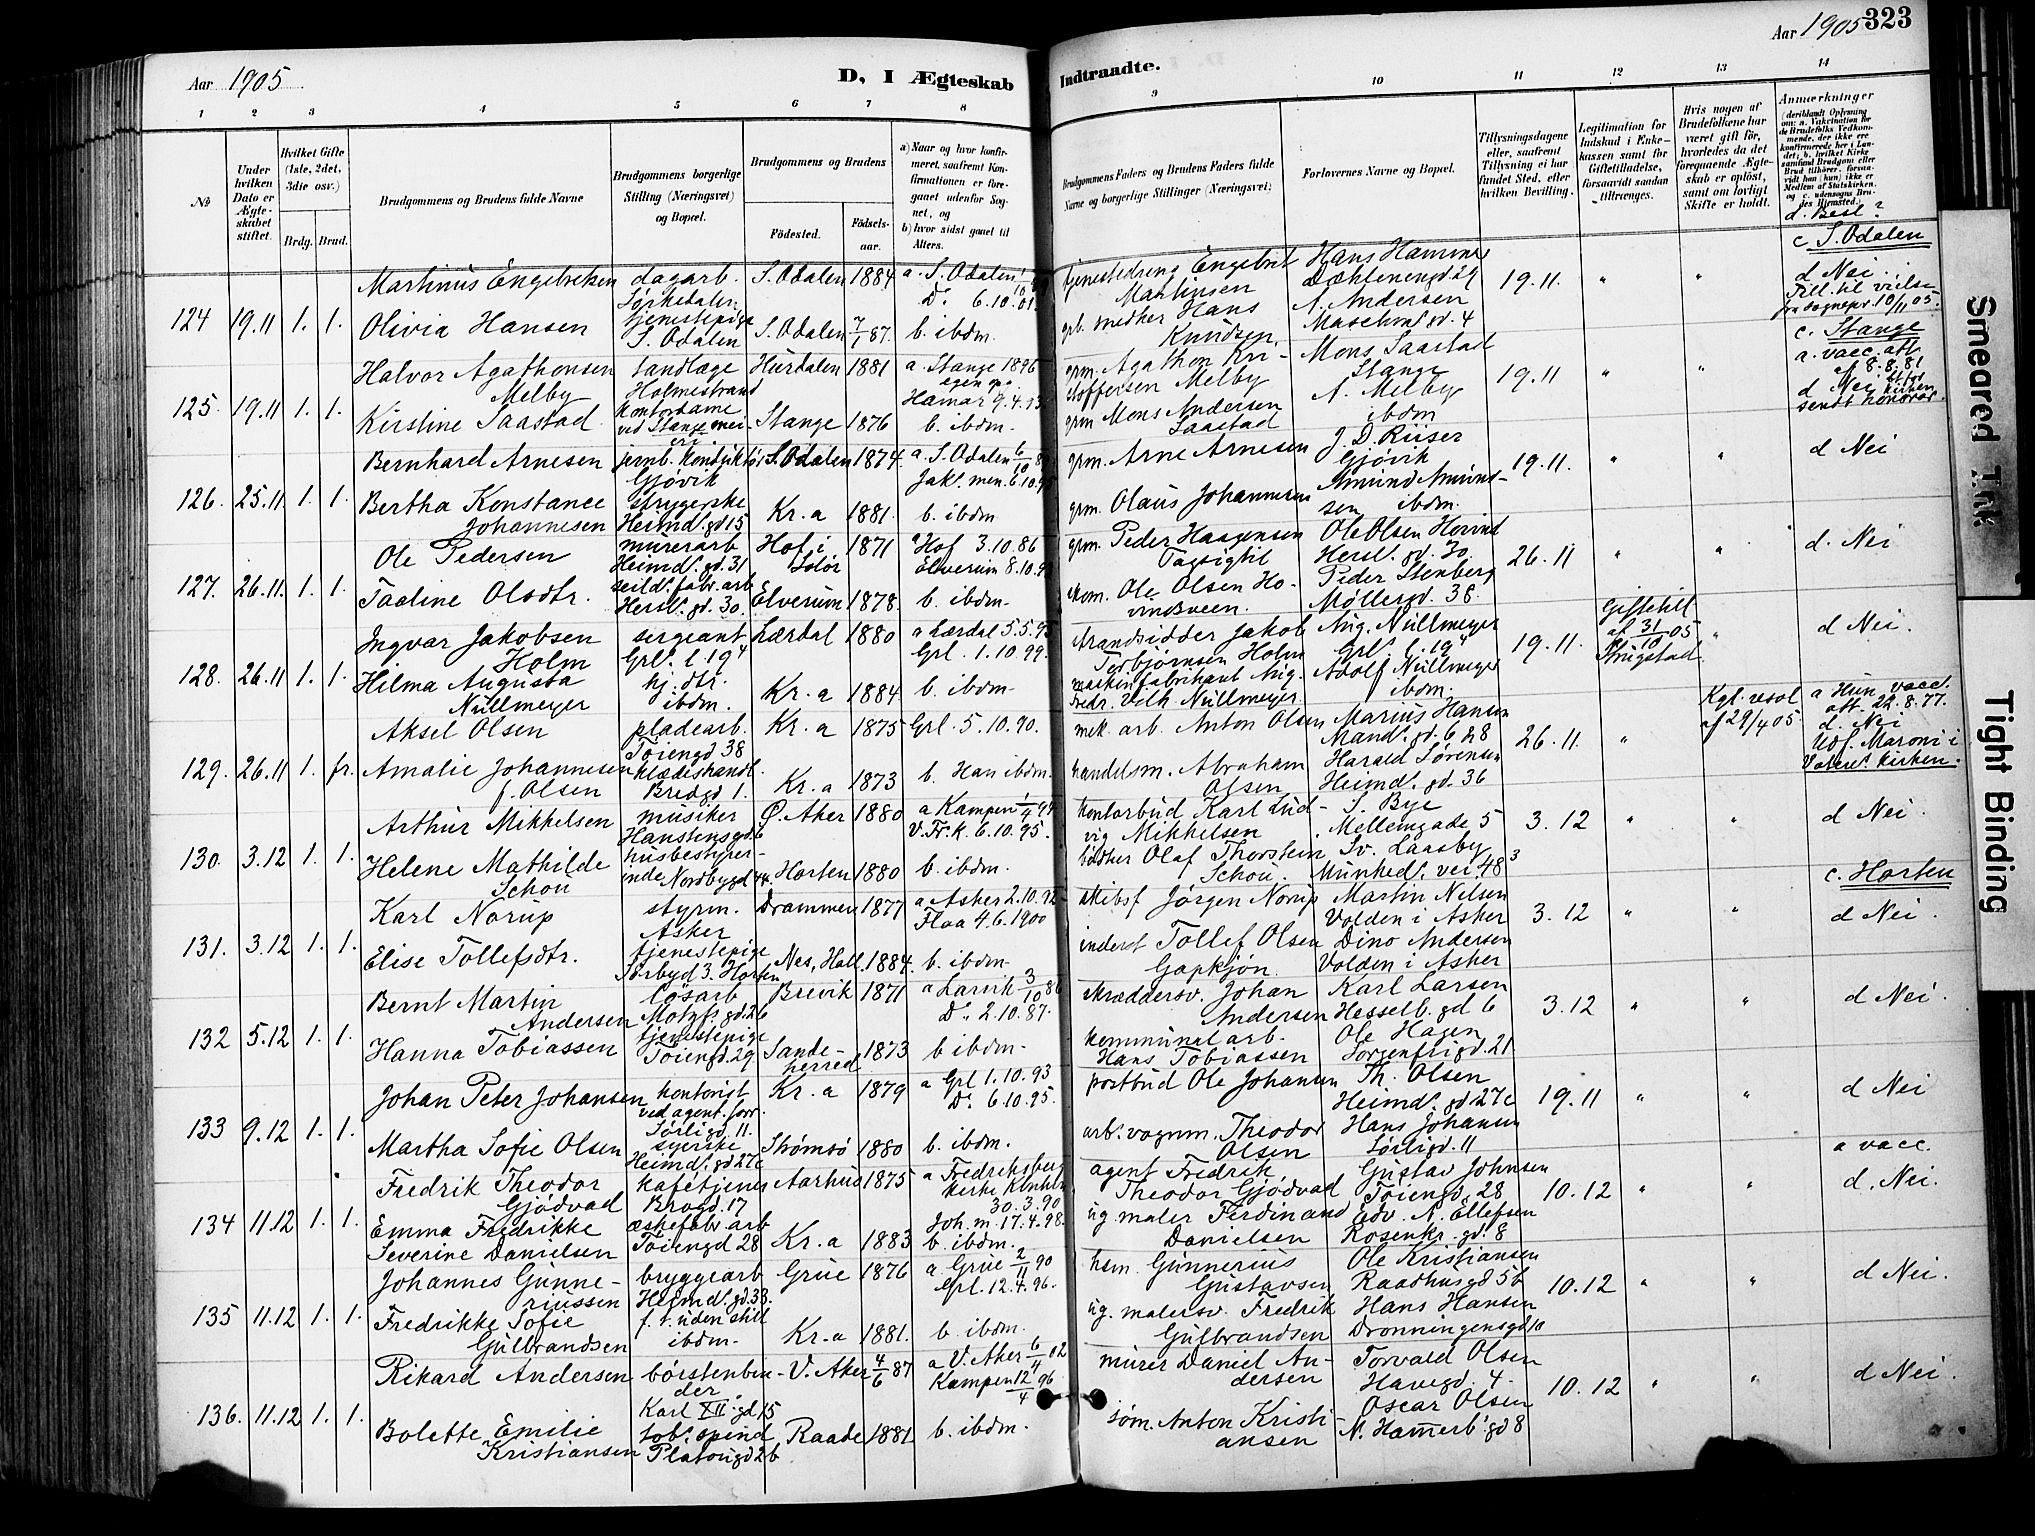 Aar 1905
D, I Ægteskab
Indtraadte.
Aar 1905 323
1 2 3 4 5 6 7 8 9 10 11 12 13 14
No
Under hvilken Dato er Ægteskabet stiftet.
Hvilket Gifte (1ste, 2det, 3die osv.)
Brdg. Brud.
Brudgommens og Brudens fulde Navne
Brudgommens borgerlige Stilling (Næringsvei) og Bopæl.
Brudgommens og Brudens
Fødested.
Fødselsaar.
a) Naar og hvor konfirmeret, saafremt Konfirmationen er foregaaet udenfor Sognet, og
b) hvor sidst gaaet til Alters.
Brudgommens Faders og Brudens Faders fulde Navne og borgerlige Stillinger (Næringsvei)
Forlovernes Navne og Bopæl.
Tillysningsdagene eller, saafremt Tillysning ei har fundet Sted, efter hvilken Bevilling.
Legitimation for Indskud i Enkekassen samt for Giftetilladelse, forsaavidt saadan tiltrænges.
Hvis nogen af Brudefolkene har været gift før, hvorledes da det foregaaende Ægteskab er opløst, samt om lovligt Skifte er holdt.
Anmærkninger
124 19.11 1. 1. Martinus Engebretsen dagarb. Sørkedalen S. Odalen 1884 a. S. Odalen
Do 6.10.01. tjenestedreng Engebret Martinsen Hans Hammer Dæhlenengd 29 19.11. " " d. Besl? c S. Odalen
Olivia Hansen tjenestepige S. Odalen S. Odalen 7/1 87. b. ibdm. grb. smedker Hans Knudsen. A. Andersen Maschius gd. 4 d Nei Till. til vielse fra sognepr 10/11 05.
125. 19.11 1. 1. Halvor Agathonsen Melby tandlæge Holmestrand Hurdalen 1881 a Stange 1896 Hamar 9.4. grm. Agathon Kristoffersen Melby Mons Saastad Stange 19.11 " " c. Stange a. vacc. att. af 8.8.81
Kirstine Saastad kontordame ved Stange meieri Stange 1876 b. ibdm. grm Mons Andersen Saastad A. Melby ibdm d Nei
126. 25.11. 1. 1. Bernhard Arnesen jernb. konduktør Gjøvik S. Odalen 1874. a. S. Odalen 6/10
Jak. men. 6.10.95 grm. Arne Arnesen J. D. Riiser Gjøvik 19.11. " " d Nei
Bertha Konstance Johannesen strygerske Heimdl. gd 15 Kr.a 1881. b. ibdm grm. Olaus Johannesen Amund Amundsen ibdm.
127. 26.11. 1. 1. Ole Pedersen murerarb Heimdl. gd. 31 Hof i Solør 1871 a Hof 3.10.86 Elverum 8.10. grm. Peder Haagensen Ole Olsen Hovind Hersl. gd. 30 26.11 " " d. Nei
Taaline Olsdtr. seild. fabr. arb Hersl. gd. 30. Elverum 1878. b. ibdm. Ole Olsen Hovindsveen. Peder Stenberg Møllergd. 38.
128. 26.11 1. 1. Ingvar Jakobsen Holm sergeant Grl. l. 19⁴ Lærdal 1880 a Lærdal 5.5.95 Grl. 1.10.99. strandsidder Jakob Torbjørnsen Holm Aug. Nüllmeyer Grl. l. 19⁴ 19.11. Giftetill af 31/10 05 " d Nei.
Hilma Augusta Nüllmeyer hj. dtr. ibdm. Kr. a 1884. b. ibdm. maskinfabrikant Aug. Fredr. Vilh Nüllmeyer. Adolf Nüllmeyer ibdm.
129. 26.11 1. fr. Aksel Olsen pladearb. Tøiengd 38 Kr. a 1875 Grl. 5.10.90. mek. arb. Anton Olsen Marius Hansen Mandl. gd. 6, 28 26.11. " Kgl. resol af 29/4 05 a Hun vacc. att. 22.8.77. d. Nei
Amalie Johannesen f. Olsen klædeshandl. Bredgd 1. Kr. a 1873 b. Han ibdm. handelsm. Abraham Olsen Harald Sørensen Heimdl. gd. 36 Udf. Maroni i Vaterl. kirken.
130. 3.12 1. 1. Arthur Mikkelsen musiker Hanstensgd. 6 Ø. Aker 1880 a Kampen 1/4 94 V. Fr. k. 6.10.95. kontorbud Karl Ludvig Mikkelsen S. Bye Mellemgade 5 3.12 " " d Nei.
Helene Mathilde Schou husbestyrerinde Nordbygd 44. Horten 1880 b. ibdm. bødker Olaf Thorstein Schou. Sv. Laasby Munkedl. vei. 48³
131. 3.12 1. 1. Karl Norup styrm. Asker Drammen 1877 a Asker 2.10.92 Flaa 4.6.1900 skibsf Jørgen Norup Martin Nelsen Volden i Asker 3.12 " " c. Horten d Nei.
Elise Tollefsdtr. tjenestepige Sørbyd 3. Horten Nes, Hall. 1884. b. ibdm. inderst Tollef Olsen Gapkjøn. Dino Andersen Volden i Asker
132 5.12 1. 1. Bernt Martin Andersen løsarb Motzfs gd. 26 Brevik 1871 a Larvik 3/10 86 Do 2.10.87. skræddersv. Johan Andersen Karl Larsen Hesselb. gd 6 3.12 " " d Nei.
Hanna Tobiassen tjenestepige Tøiengd. 29 Sandeherred 1873 b ibdm. kommunal arb. Hans Tobiassen Ole Hagen Sorgenfrigd. 21
133 9.12 1. 1. Johan Peter Johansen kontorist ved agent. forr. Sørligd. 11. Kr. a 1879 a Grl 1.10.93 Do 6.10.95. postbud Ole Johansen Th. Olsen Heimdl. gd 27c 19.11 " " d Nei
Martha Sofie Olsen syerske Heimdl. gd 27c Strømsø 1880 b. ibdm. arb. vognm. Theodor Olsen Hans Johansen Sørligd. 11
134 11.12 1. 1. Fredrik Theodor Gjødvad kafétjener Brogd. 17 Aarhus 1875 a Fredriksberg kirke Kbnhvn 30.3.90 Joh. m. 17.4.98. agent Fredrik Theodor Gjødvad Gustav Johnsen Tøiengd. 28 10.12 " " a vacc. d. Nei.
Emma Fredrikke Severine Danielsen æskefabr arb Tøiengd 28 Kr. a 1883 b. ibdm. ug. maler Ferdinand Danielsen Edv. N. Ellefsen Rosenkr. gd. 8
135 11.12 1. 1. Johannes Gunneriussen bryggearb Heimdl. gd. 33. Grue 1876 a Grue 2/11 90 Grl. 12.4.96. hsm. Gunnerius Gustavsen Ole Kristiansen Raadhusgd 5b 10.12 " " d Nei.
Fredrikke Sofie Gulbrandsen f. t. uden still ibdm. Kr. a 1881. b. ibdm. ug. malersv. Fredrik Gulbrandsen Hans Hansen Dronningensgd 10
136. 11.12 1. 1. Rikard Andersen børstenbinder Karl XII. gd 15 V. Aker 4/6 87 a V. Aker 6/4 02 Kampen 12/4 96 murer Daniel Andersen Torvald Olsen Havegd. 4. 10.12 " " d Nei.
Bolette Emilie Kristiansen tob. spind Platougd 2b Raade 1881 b. ibdm. søm. Anton Kristiansen Oscar Olsen N. Hammerb. gd 8
Smeared Ink
Tight Binding